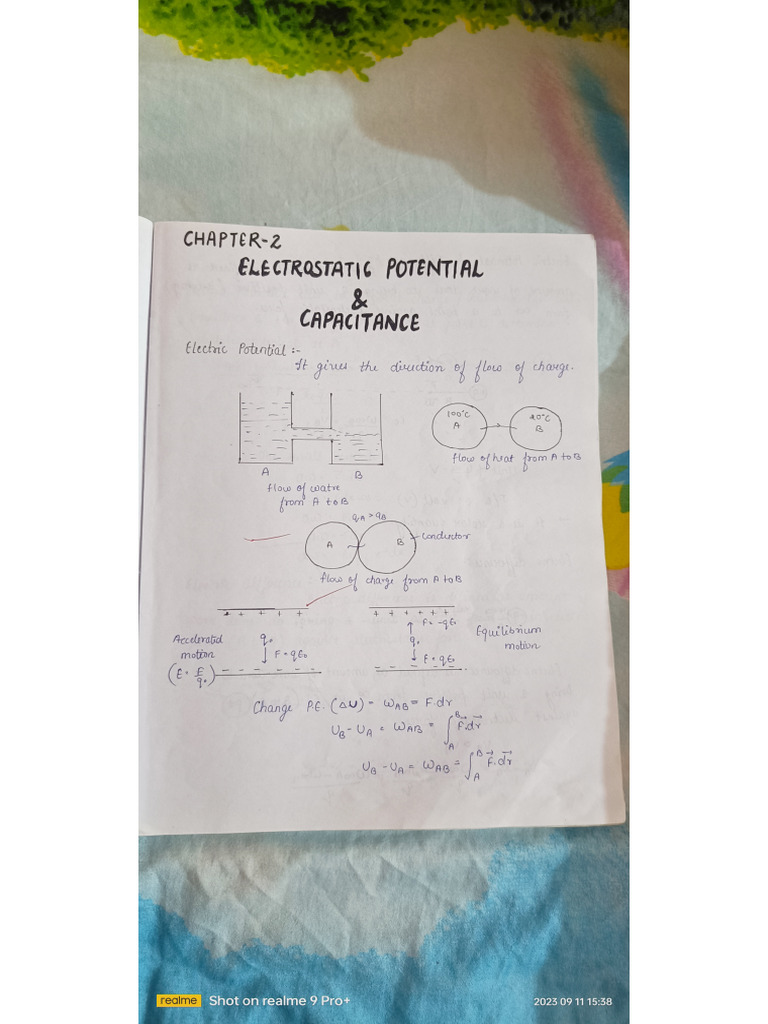 CHAPTER-2
ELECTROSTATIC POTENTIAL
&
CAPACITANCE
Electric Potential :-
It gives the direction of flow of charge.
100°C
A
40°C
B
flow of heat from A to B
A
B
flow of watre
from A to B
qA > qB
A
B
Conductor
flow of charge from A to B
+ + + + +
+ + + + + +
F = -qE₀
Accelerated
motion
(E = F/q₀)
q₀
F = qE₀
q₀
F = qE₀
Equilibrium
motion
Change P.E. (ΔU) = WAB = F.dr
UB - UA = WAB = ∫AB F⃗.dr⃗
UB - UA = WAB = ∫AB F⃗.dr⃗
realme Shot on realme 9 Pro+
2023 09 11 15:38